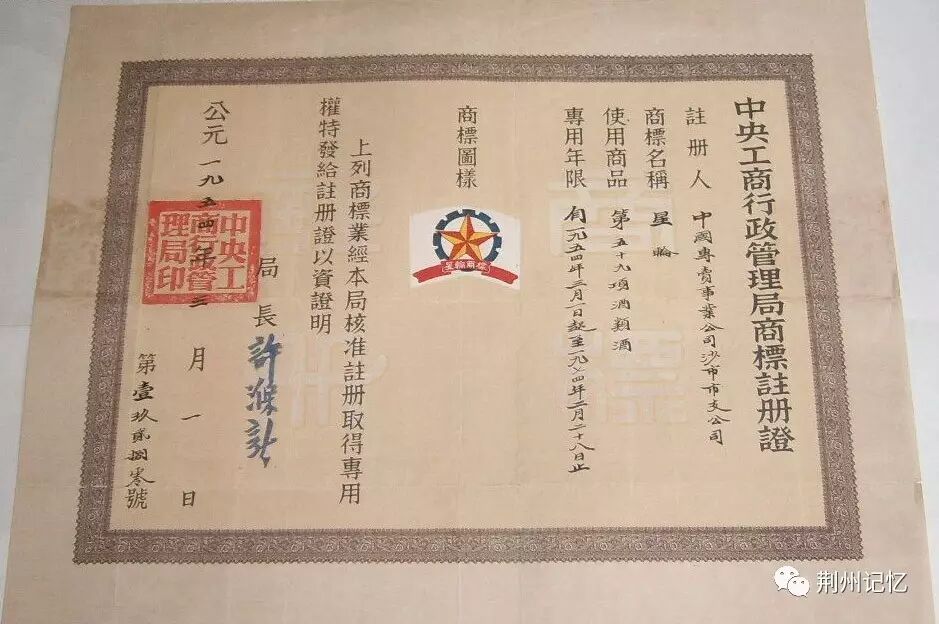 中央工商行政管理局商標註册證
註册人 中國專賣事業公司沙市市支公司
商標名稱 星輪
使用商品 第五十九項酒類酒
專用年限 自一九五四年三月一日起至一九七四年二月二十八日止
商標圖樣
標商輪星
上列商標業經本局核准註册取得專用
權特發給註册證以資證明
局長 許滌新
公元一九五四年三月一日
中央工
商行政管
理局印
第壹玖貳捌零號
商標
荆州记忆